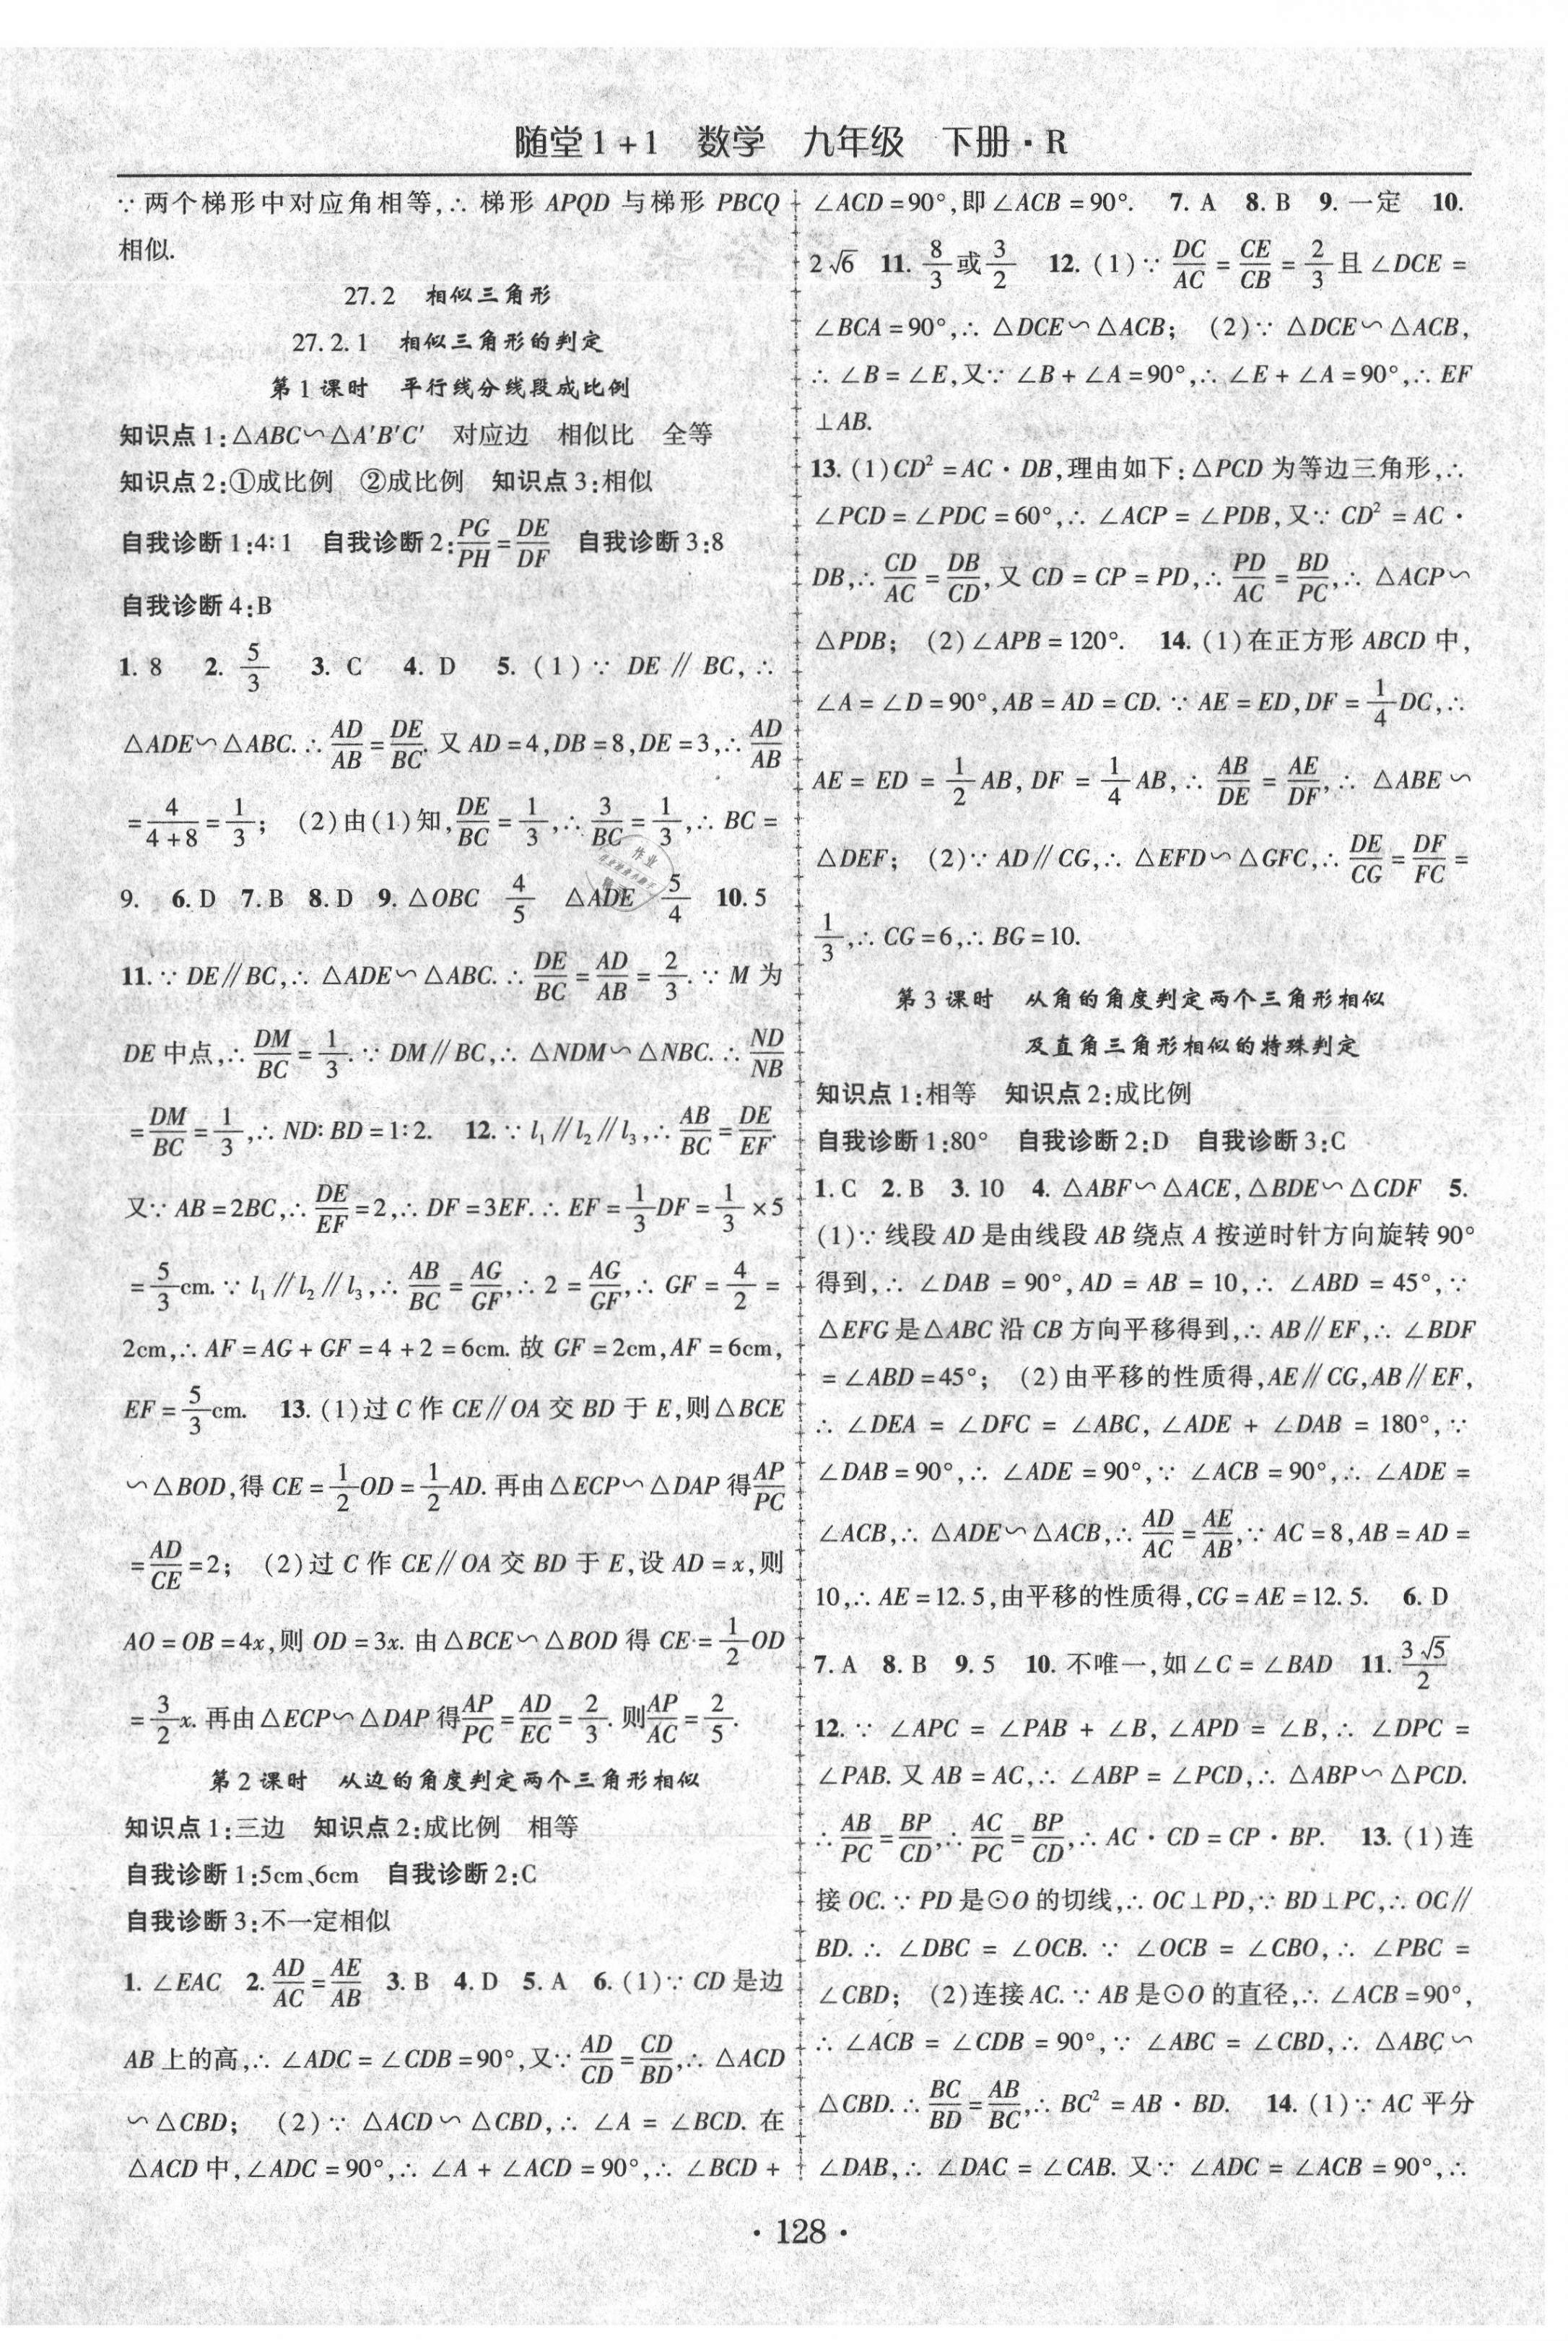 随堂1+1 数学 九年级 下册·R
∵两个梯形中对应角相等,∴梯形 APQD 与梯形 PBCQ
相似.
27.2 相似三角形
27.2.1 相似三角形的判定
第1课时 平行线分线段成比例
知识点1:△ABC∽△A'B'C' 对应边 相似比 全等
知识点2:①成比例 ②成比例 知识点3:相似
自我诊断1:4∶1 自我诊断2:PG/PH=DE/DF 自我诊断3:8
自我诊断4:B
1. 8 2. 5/3 3. C 4. D 5. (1)∵ DE∥BC,∴
△ADE∽△ABC.∴AD/AB=DE/BC.又 AD=4,DB=8,DE=3,∴AD/AB
=4/(4+8)=1/3; (2)由(1)知,DE/BC=1/3,∴3/BC=1/3,∴BC=
9. 6. D 7. B 8. D 9. △OBC 4/5 △ADE 5/4 10. 5
11.∵DE∥BC,∴△ADE∽△ABC.∴DE/BC=AD/AB=2/3.∵M 为
DE 中点,∴DM/BC=1/3.∵DM∥BC,∴△NDM∽△NBC.∴ND/NB
=DM/BC=1/3,∴ND∶BD=1∶2. 12.∵l₁∥l₂∥l₃,∴AB/BC=DE/EF.
又∵AB=2BC,∴DE/EF=2,∴DF=3EF.∴EF=1/3DF=1/3×5
=5/3cm.∵l₁∥l₂∥l₃,∴AB/BC=AG/GF,∴2=AG/GF,∴GF=4/2=
2cm,∴AF=AG+GF=4+2=6cm.故 GF=2cm,AF=6cm,
EF=5/3cm. 13. (1)过 C 作 CE∥OA 交 BD 于 E,则△BCE
∽△BOD,得 CE=1/2OD=1/2AD.再由△ECP∽△DAP 得AP/PC
=AD/CE=2; (2)过 C 作 CE∥OA 交 BD 于 E,设 AD=x,则
AO=OB=4x,则 OD=3x.由△BCE∽△BOD 得 CE=1/2OD
=3/2x.再由△ECP∽△DAP 得AP/PC=AD/EC=2/3.则AP/AC=2/5.
第2课时 从边的角度判定两个三角形相似
知识点1:三边 知识点2:成比例 相等
自我诊断1:5cm、6cm 自我诊断2:C
自我诊断3:不一定相似
1. ∠EAC 2. AD/AC=AE/AB 3. B 4. D 5. A 6. (1)∵CD 是边
AB 上的高,∴∠ADC=∠CDB=90°,又∵AD/CD=CD/BD,∴△ACD
∽△CBD; (2)∵△ACD∽△CBD,∴∠A=∠BCD.在
△ACD 中,∠ADC=90°,∴∠A+∠ACD=90°,∴∠BCD+
∠ACD=90°,即∠ACB=90°. 7. A 8. B 9. 一定 10.
2√6 11. 8/3或3/2 12. (1)∵DC/AC=CE/CB=2/3且∠DCE=
∠BCA=90°,∴△DCE∽△ACB; (2)∵△DCE∽△ACB,
∴∠B=∠E,又∵∠B+∠A=90°,∴∠E+∠A=90°,∴EF
⊥AB.
13. (1)CD²=AC·DB,理由如下:△PCD 为等边三角形,∴
∠PCD=∠PDC=60°,∴∠ACP=∠PDB,又∵CD²=AC·
DB,∴CD/AC=DB/CD,又 CD=CP=PD,∴PD/AC=BD/PC,∴△ACP∽
△PDB; (2)∠APB=120°. 14. (1)在正方形 ABCD 中,
∠A=∠D=90°,AB=AD=CD.∵AE=ED,DF=1/4DC,∴
AE=ED=1/2AB,DF=1/4AB,∴AB/DE=AE/DF,∴△ABE∽
△DEF; (2)∵AD∥CG,∴△EFD∽△GFC,∴DE/CG=DF/FC=
1/3,∴CG=6,∴BG=10.
第3课时 从角的角度判定两个三角形相似
及直角三角形相似的特殊判定
知识点1:相等 知识点2:成比例
自我诊断1:80° 自我诊断2:D 自我诊断3:C
1. C 2. B 3. 10 4. △ABF∽△ACE,△BDE∽△CDF 5.
(1)∵线段 AD 是由线段 AB 绕点 A 按逆时针方向旋转90°
得到,∴∠DAB=90°,AD=AB=10,∴∠ABD=45°,∵
△EFG 是△ABC 沿 CB 方向平移得到,∴AB∥EF,∴∠BDF
=∠ABD=45°; (2)由平移的性质得,AE∥CG,AB∥EF,
∴∠DEA=∠DFC=∠ABC,∠ADE+∠DAB=180°,∵
∠DAB=90°,∴∠ADE=90°,∵∠ACB=90°,∴∠ADE=
∠ACB,∴△ADE∽△ACB,∴AD/AC=AE/AB,∵AC=8,AB=AD=
10,∴AE=12.5,由平移的性质得,CG=AE=12.5. 6. D
7. A 8. B 9. 5 10. 不唯一,如∠C=∠BAD 11. 3√5/2
12.∵∠APC=∠PAB+∠B,∠APD=∠B,∴∠DPC=
∠PAB.又 AB=AC,∴∠ABP=∠PCD,∴△ABP∽△PCD.
∴AB/PC=BP/CD,∴AC/PC=BP/CD,∴AC·CD=CP·BP. 13. (1)连
接 OC.∵PD 是⊙O 的切线,∴OC⊥PD,∵BD⊥PC,∴OC∥
BD.∴∠DBC=∠OCB.∵∠OCB=∠CBO,∴∠PBC=
∠CBD; (2)连接 AC.∵AB 是⊙O 的直径,∴∠ACB=90°,
∴∠ACB=∠CDB=90°,∵∠ABC=∠CBD,∴△ABC∽
△CBD.∴BC/BD=AB/BC,∴BC²=AB·BD. 14. (1)∵AC 平分
∠DAB,∴∠DAC=∠CAB.又∵∠ADC=∠ACB=90°,∴
·128·